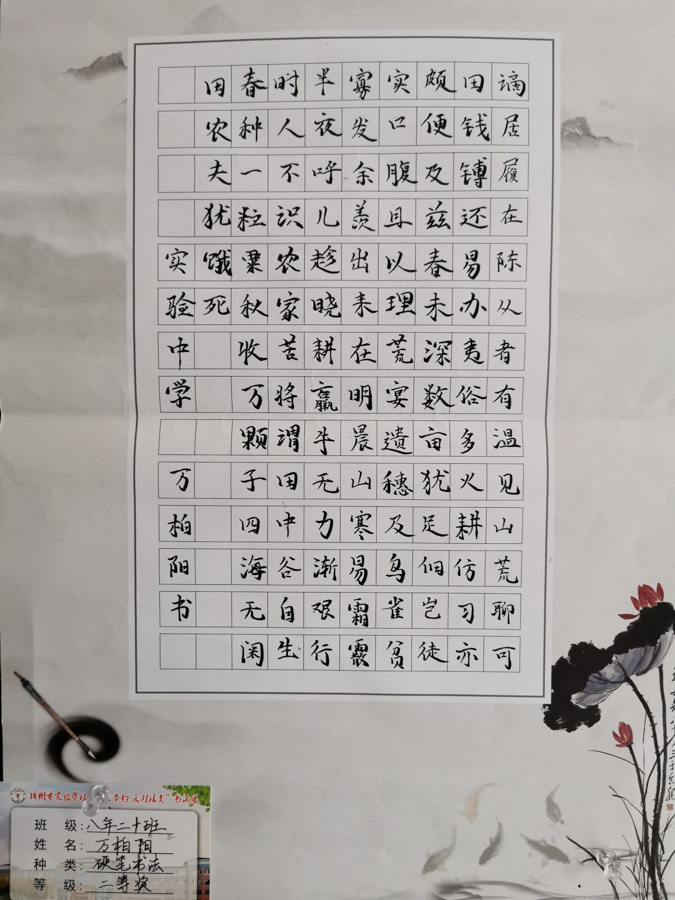 谪居履在陈从者有温见山荒聊可
田钱镈还易办夷俗多火耕仿习亦
颇便及兹春未深数亩犹足佃岂徒
实口腹且以理荒宴遗穗及鸟雀贫
寡发余羡出耒在明晨山寒易霜霰
半夜呼儿趁晓耕羸牛无力渐艰行
时人不识农家苦将谓田中谷自生
春种一粒粟秋收万颗子四海无闲
田农夫犹饿死
实验中学 万柏阳书
班 级:八年二十班
姓 名:万柏阳
种 类:硬笔书法
等 级:二等奖